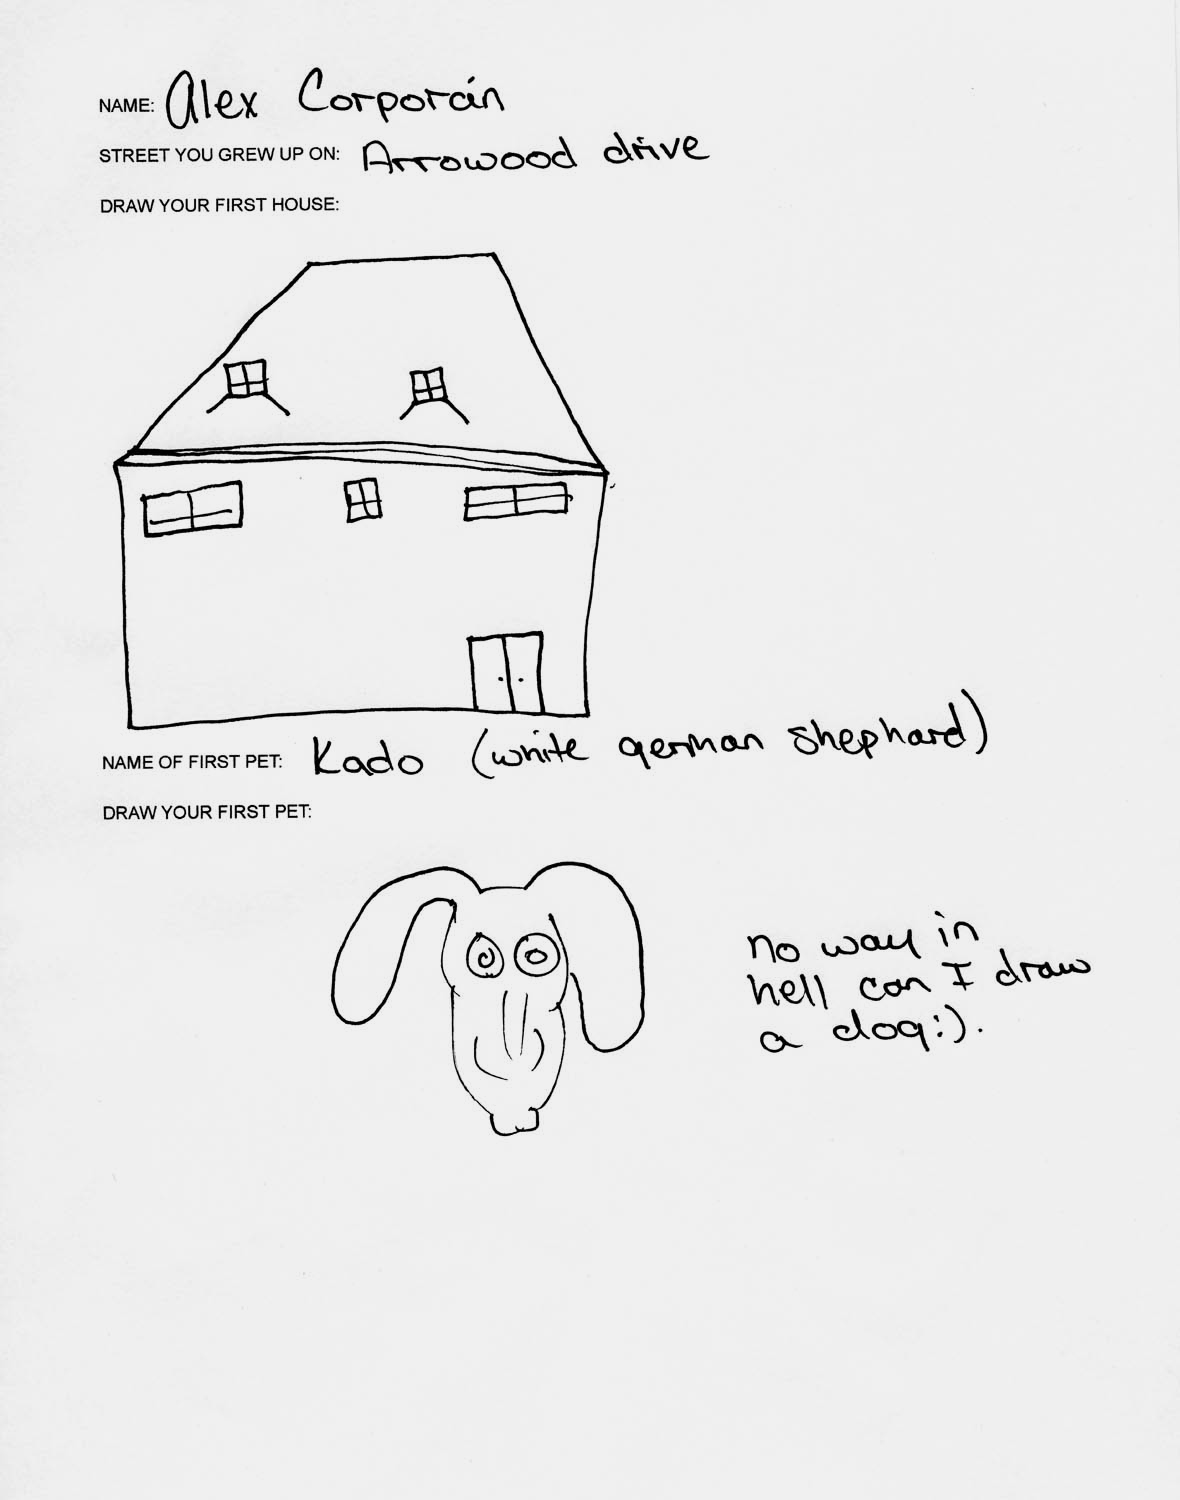 NAME: Alex Corporán
STREET YOU GREW UP ON: Arrowood drive
DRAW YOUR FIRST HOUSE:
NAME OF FIRST PET: Kado (white german shephard)
DRAW YOUR FIRST PET:
no way in
hell can I draw
a dog:).